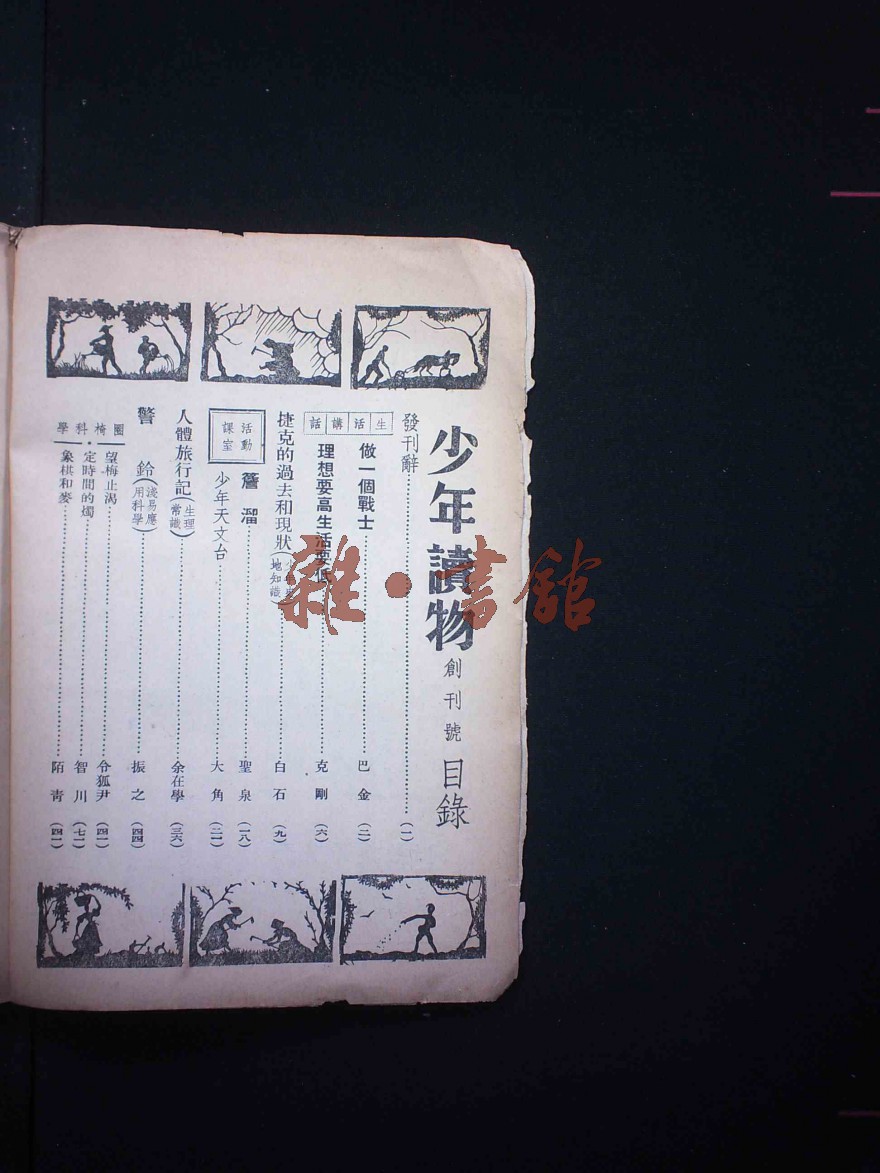 少年讀物 創刊號 目錄
發刊辭……(一)
生活講話
做一個戰士……巴金(二)
理想要高生活要低……克剛(六)
捷克的過去和現狀(地知識)……白石(九)
活動課室
簷溜……聖泉(一八)
少年天文台……大角(二一)
人體旅行記(生理常識)……余在學(三六)
警鈴(淺易應用科學)……振之(四四)
圈椅科學
望梅止渴……令狐尹(四一)
定時間的燭……智川(七一)
象棋和麥……陌青(四一)
雜·書館